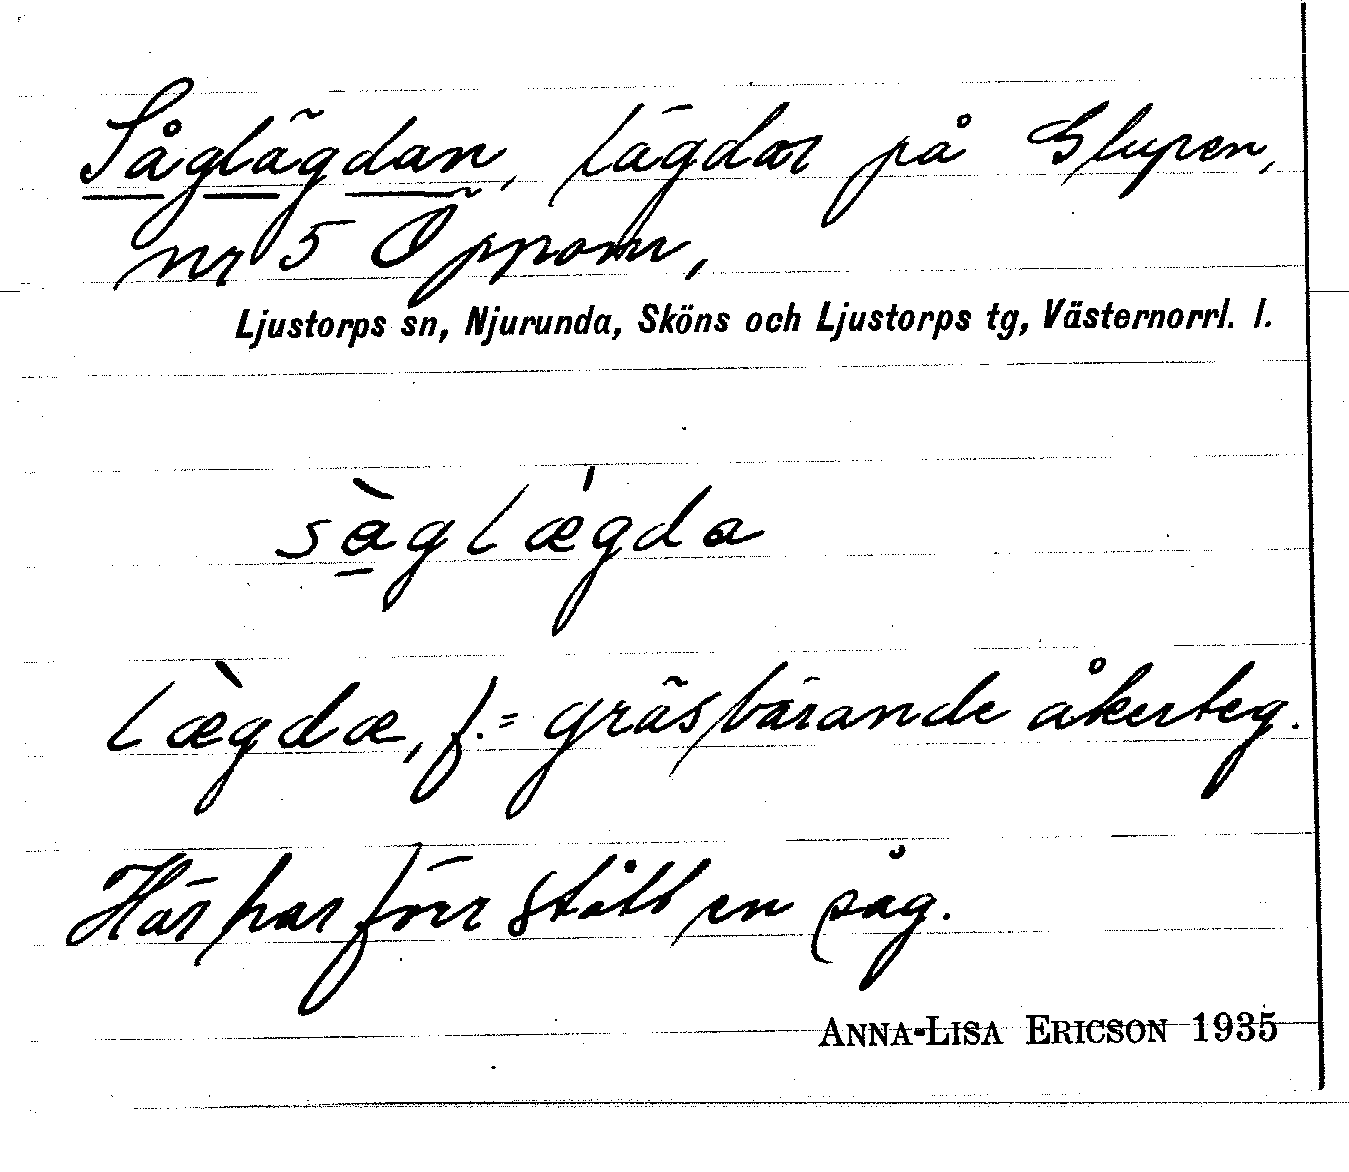 Såglägdan, lägdor på Slupen,
nr 5 Öppom,
Ljustorps sn, Njurunda, Sköns och Ljustorps tg, Västernorrl. l.
sàglægda
lægdæ, f. = gräsbärande åkerteg.
Här har förr stått en såg.
ANNA-LISA ERICSON 1935